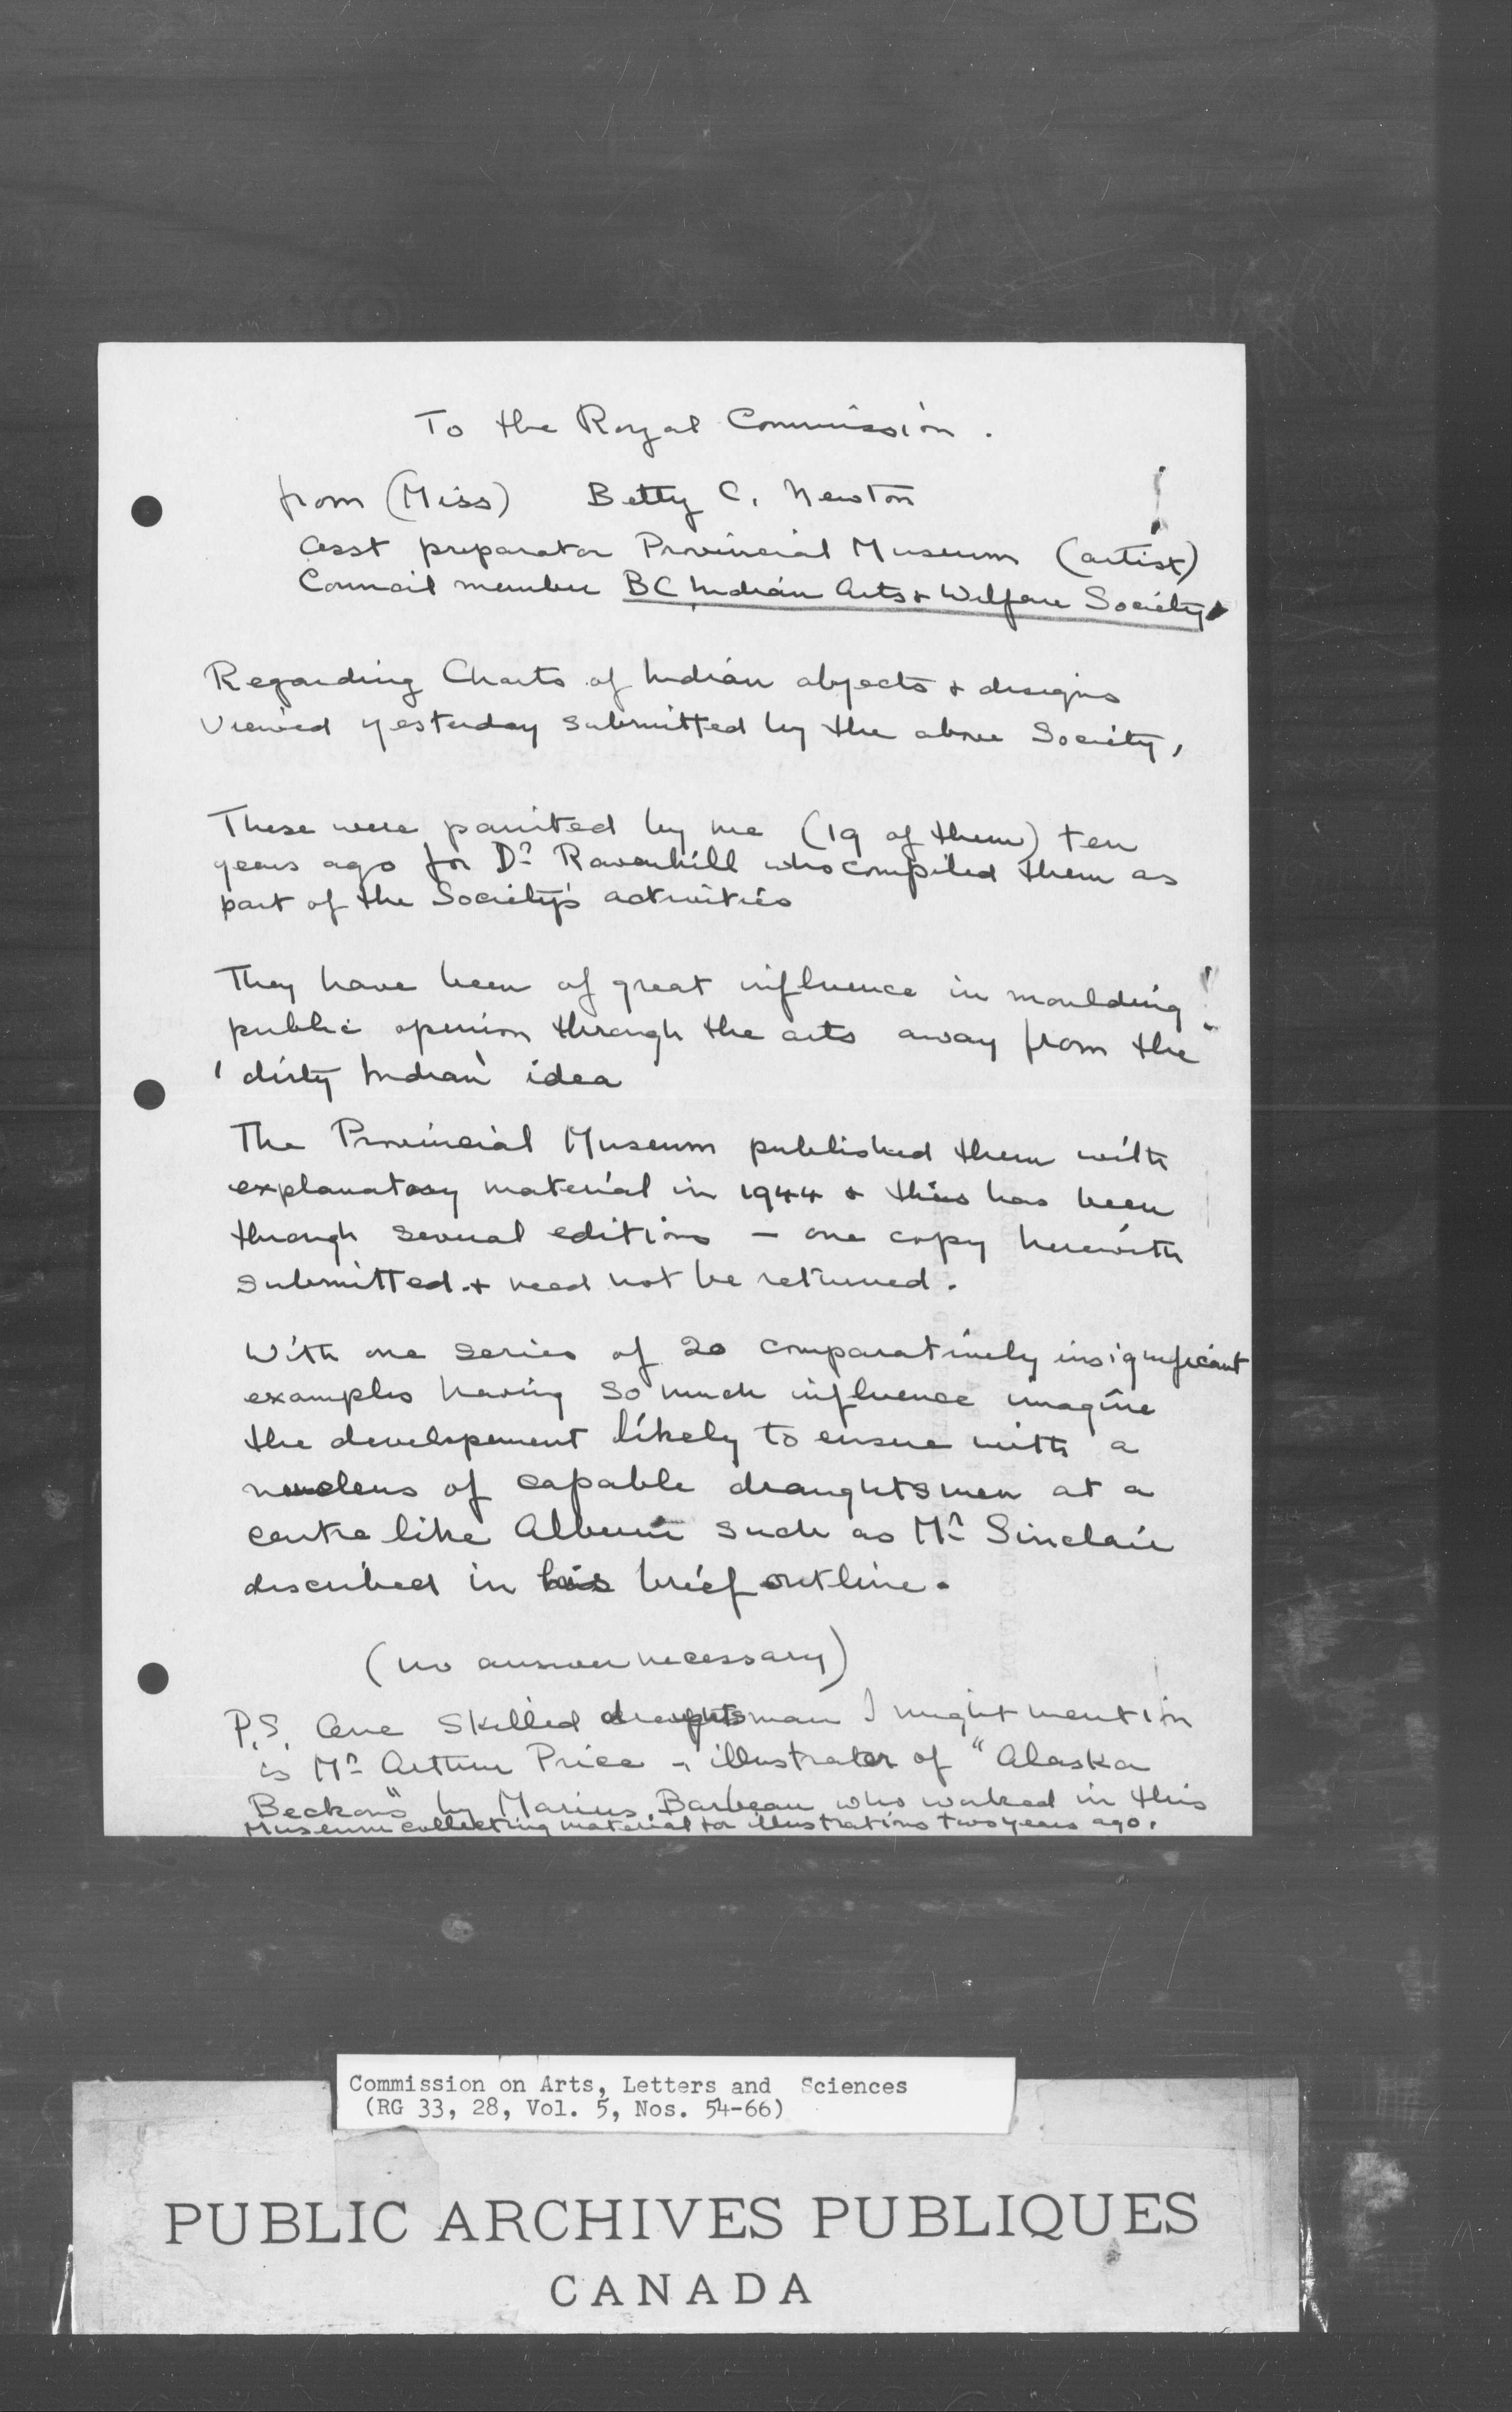 To the Royal Commission.
from (Miss) Betty C. Newton
Asst preparator Provincial Museum (artist)
Council member BC Indian Arts & Welfare Society.
Regarding Charts of Indian objects & designs
viewed yesterday submitted by the above Society,
These were painted by me (19 of them) ten
years ago for Dr Ravenhill who compiled them as
part of the Society's activities
They have been of great influence in moulding
public opinion through the arts away from the
'dirty Indian' idea
The Provincial Museum published them with
explanatory material in 1944 & this has been
through several editions - one copy herewith
submitted & need not be returned.
With one series of 20 comparatively insignificant
examples having so much influence imagine
the developement likely to ensue with a
nucleus of capable draughtsmen at a
centre like Alberni such as Mr Sinclair
described in his brief outline.
(no answer necessary)
P.S. One skilled draughtsman I might mention
is Mr Arthur Price - illustrator of "Alaska
Beckons" by Marius Barbeau who worked in this
Museum collecting material for illustrations two years ago.
Commission on Arts, Letters and Sciences
(RG 33, 28, Vol. 5, Nos. 54-66)
PUBLIC ARCHIVES PUBLIQUES
CANADA